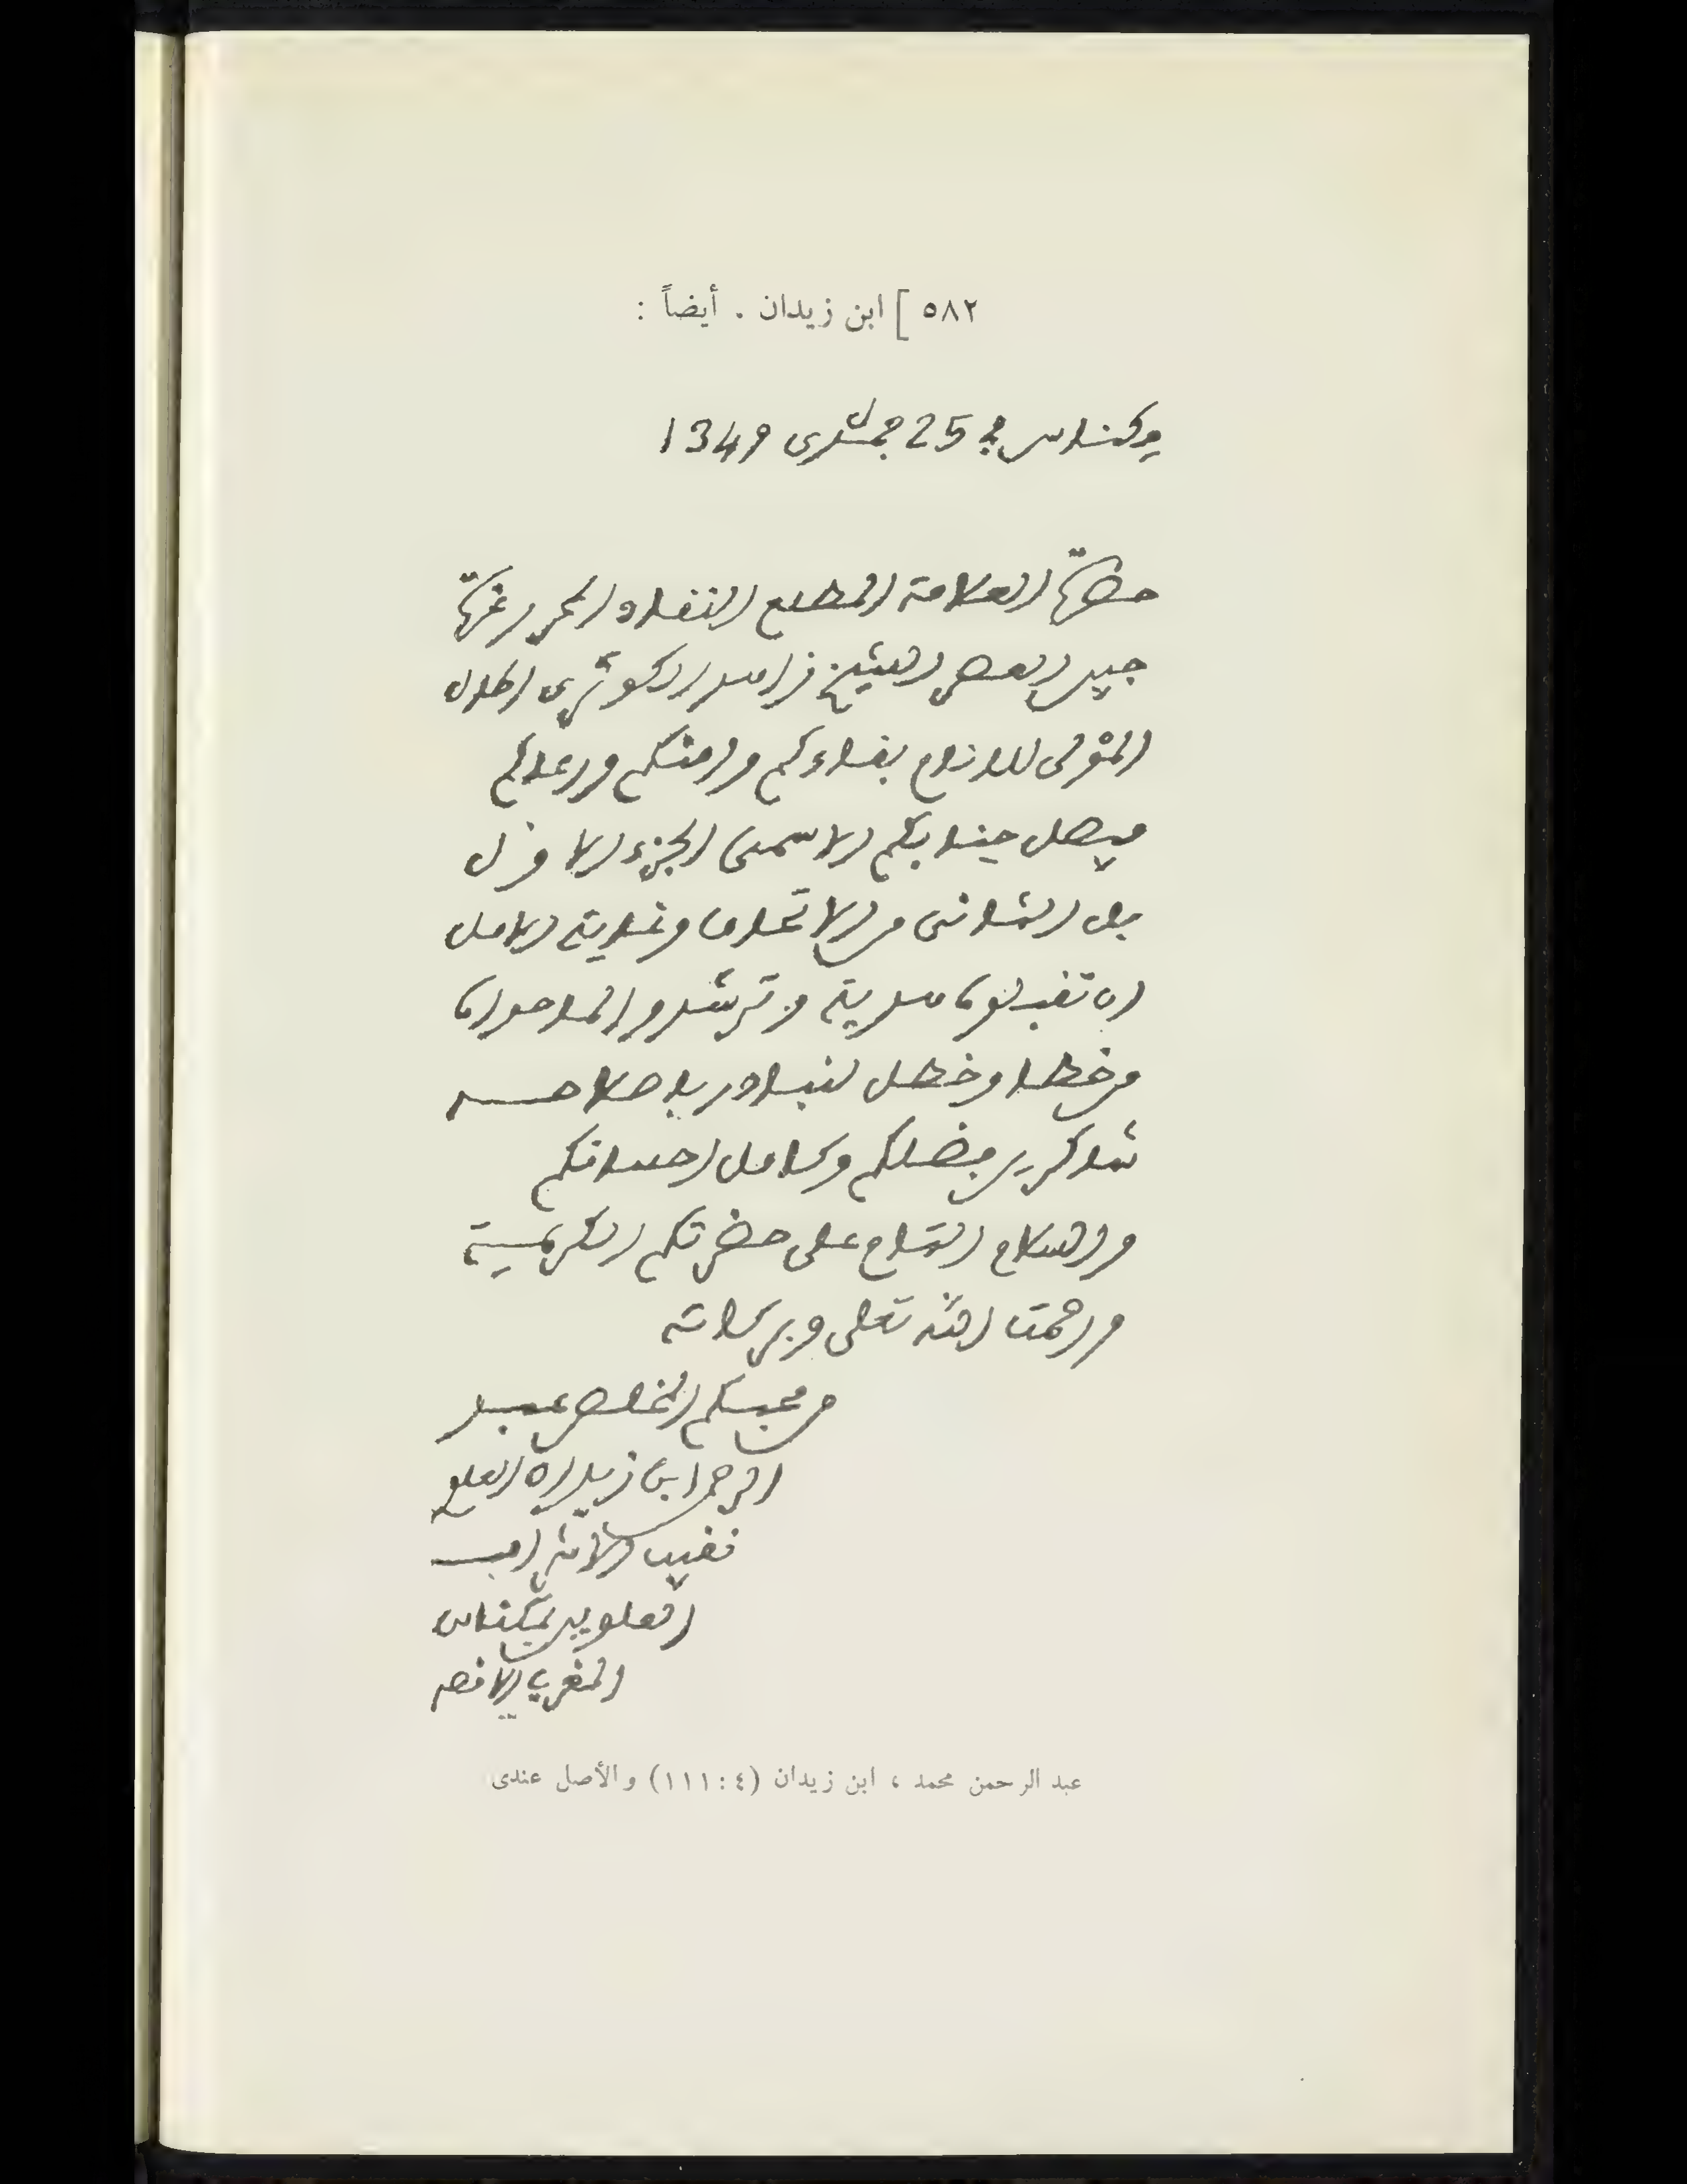 ٥٨٢ ] ابن زيدان . أيضاً :
مكناس في 25 جمادى 1349
حضرة العلامة المطلع النقاد المحرر غرة
جبين العصر الشيخ زاهد الكوثري اطال
المولى للانام بقاءكم وامنكم ورعاكم
فيصل جنابكم الاسمى الجزء الاول
بل الثاني من الاتحاف وغاية الامل
ان تقبلوه هدية وترشدوا لما حواه
من خطإ وخطل لنبادر باصلاحه
شاكرين فضلكم وكامل احسانكم
والسلام التام على حضرتكم الكريمة
ورحمت الله تعلى وبركاته
من محبكم المخلص عبد
الرحمن ابن زيدان العلوي
نقيب الاشراف
العلويين بمكناس
المغرب الاقصى
عبد الرحمن محمد ، ابن زيدان (٤ : ١١١) والأصل عندى